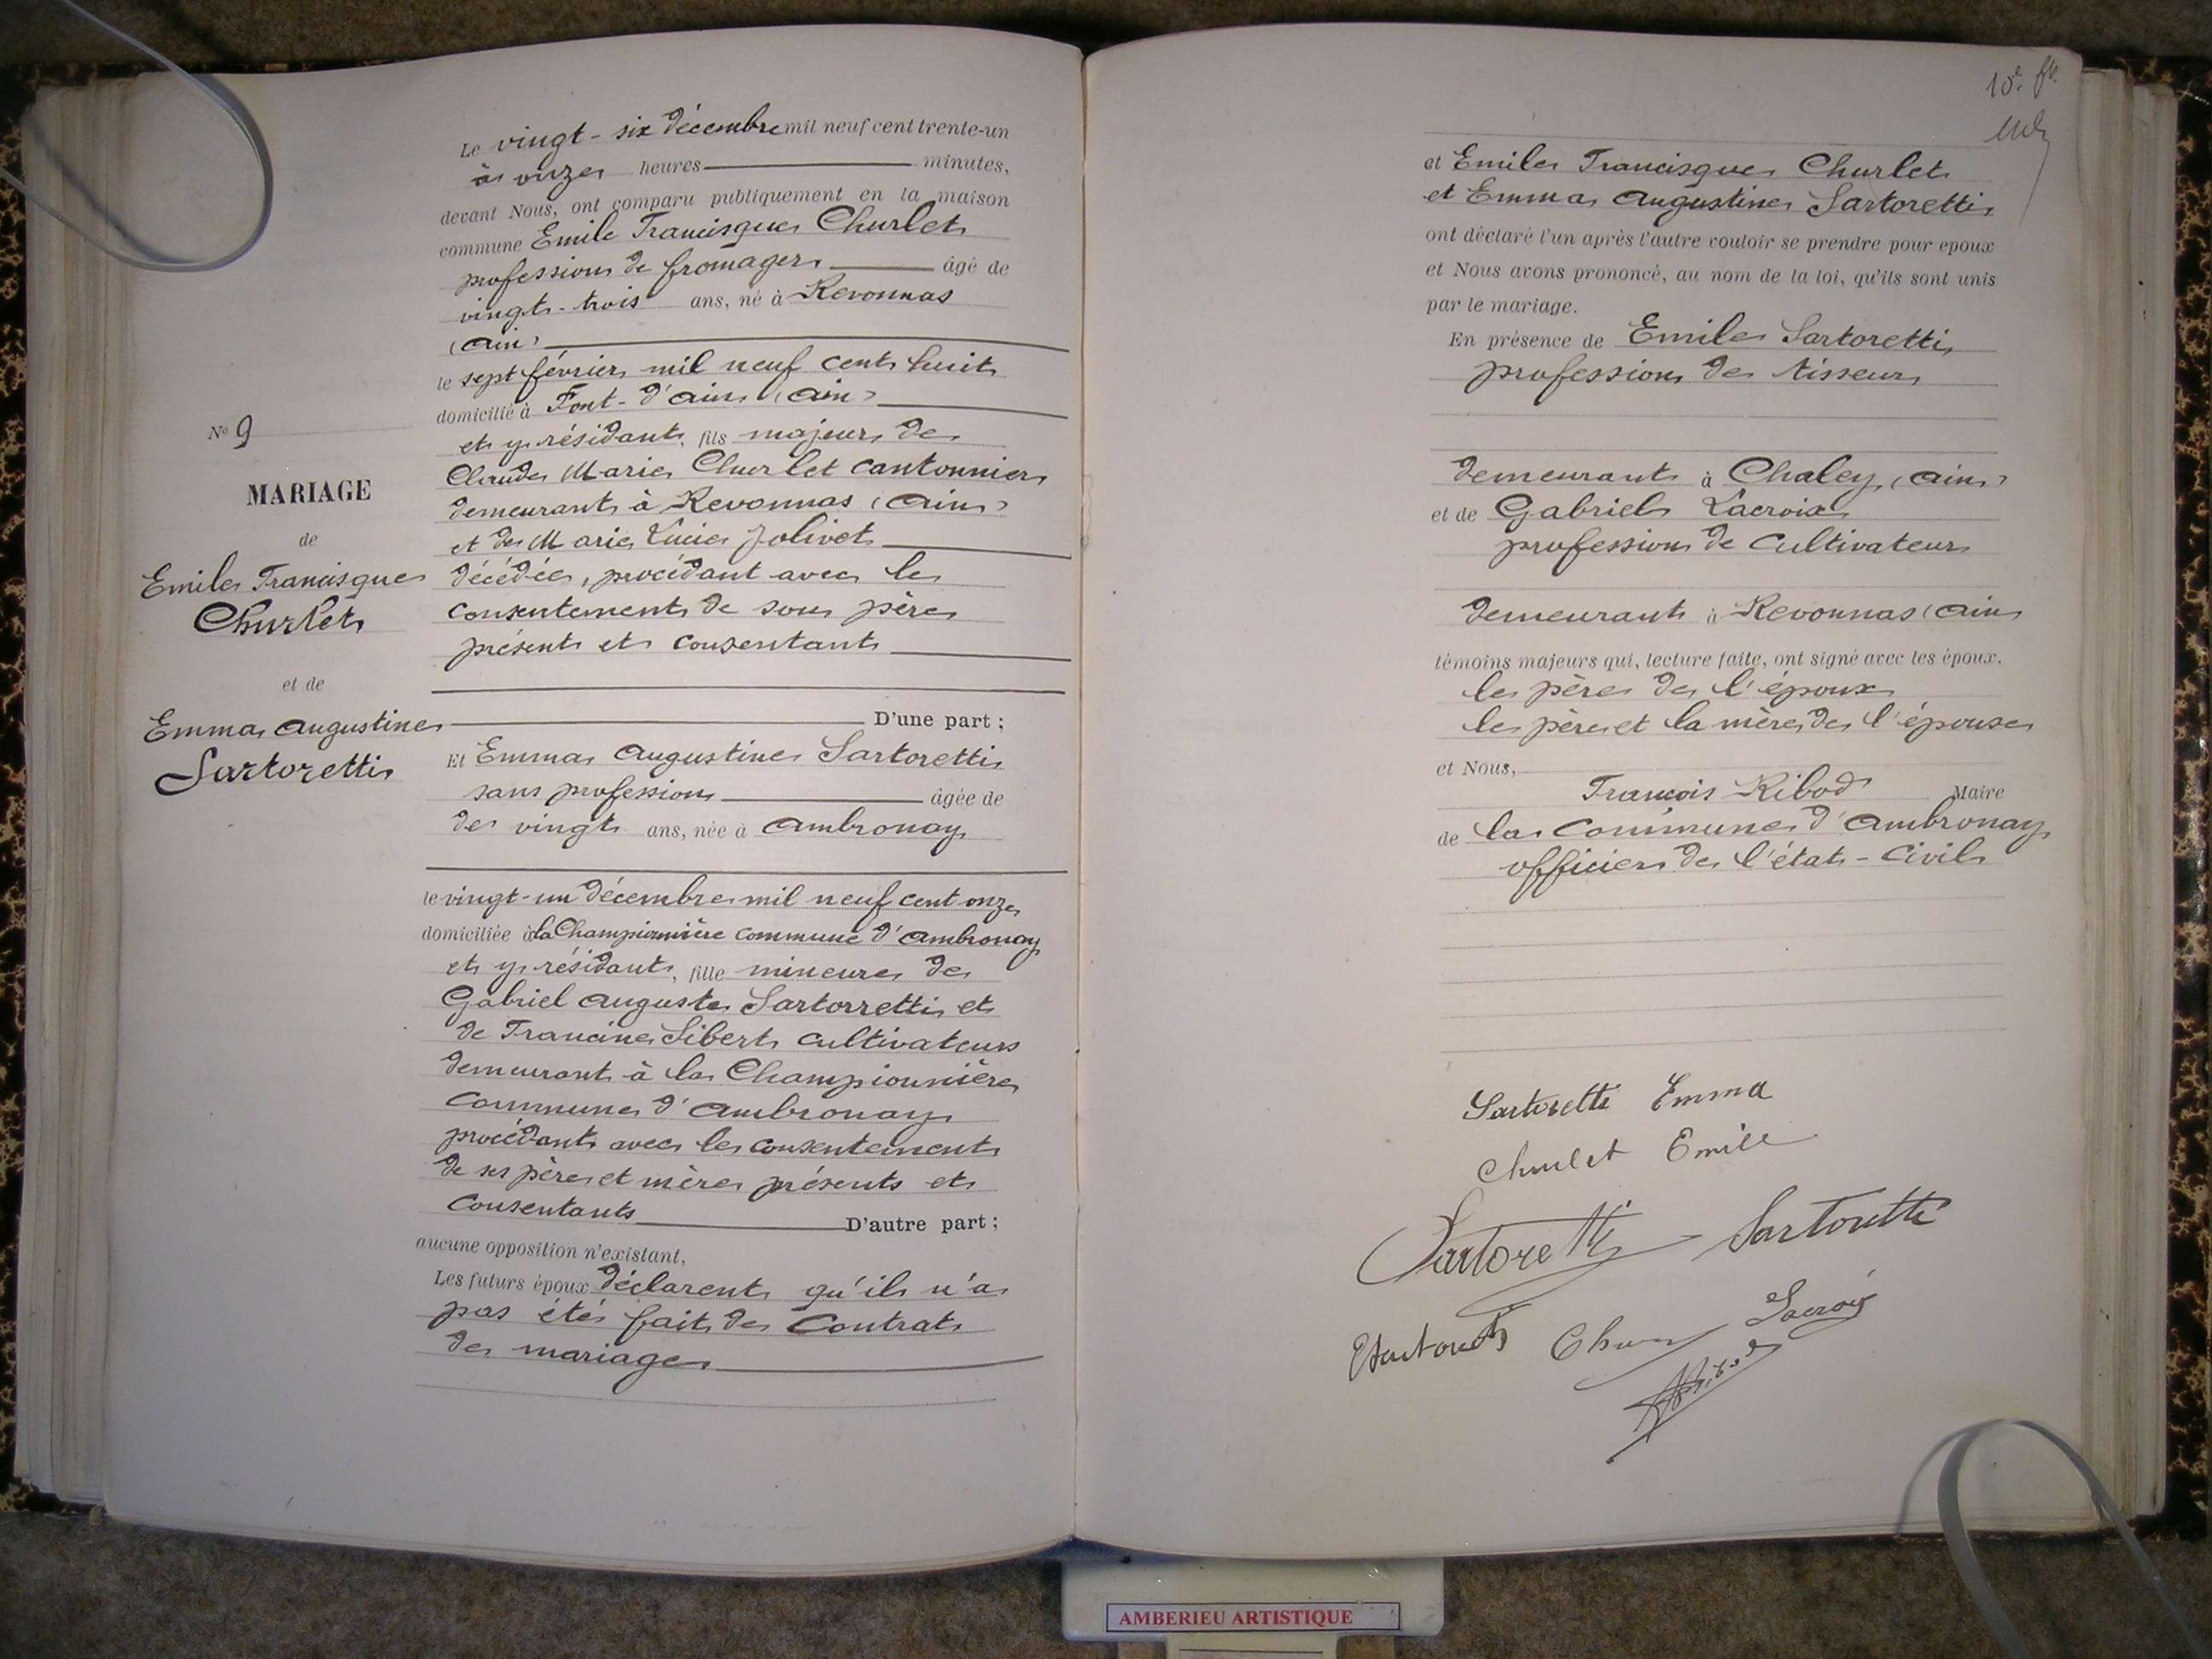 N° 9
MARIAGE
de
Emile Francisque
Churlet
et de
Emma Augustine
Sartoretti
Le vingt-six décembre mil neuf cent trente-un
à onze heures minutes,
devant Nous, ont comparu publiquement en la maison
commune Emile Francisque Churlet
profession de fromager âgé de
vingt-trois ans, né à Revonnas
(Ain)
le sept février mil neuf cent huit
domicilié à Pont-d'Ain (Ain)
et y résidant, fils majeur de
Claude Marie Churlet cantonnier
demeurant à Revonnas (Ain)
et de Marie Lucie Jolivet
décédée, procédant avec le
consentement de son père
présent et consentant
D'une part ;
Et Emma Augustine Sartoretti
sans profession âgée de
de vingt ans, née à Ambronay
le vingt-un décembre mil neuf cent onze
domiciliée à la Championnière commune d'Ambronay
et y résidant, fille mineure de
Gabriel Auguste Sartorretti et
de Francine Sibert cultivateurs
demeurant à la Championnière
commune d'Ambronay
procédant avec le consentement
de ses père et mère présents et
consentants D'autre part ;
aucune opposition n'existant,
Les futurs époux déclarent qu'il n'a
pas été fait de Contrat
de mariage
10e ft.
et Emile Francisque Churlet
et Emma Augustine Sartoretti
ont déclaré l'un après l'autre vouloir se prendre pour epoux
et Nous avons prononcé, au nom de la loi, qu'ils sont unis
par le mariage.
En présence de Emile Sartoretti
profession de tisseur
demeurant à Chaley (Ain)
et de Gabriel Lacroix
profession de cultivateur
demeurant à Revonnas (Ain
témoins majeurs qui, lecture faite, ont signé avec les époux.
le père de l'époux
le père et la mère de l'épouse
et Nous,
François Ribod Maire
de la Commune d'Ambronay
officier de l'état-civil
Sartoretti Emma
Churlet Emile
Sartoretti Sartoretti
Lacroix
Ribod
AMBERIEU ARTISTIQUE